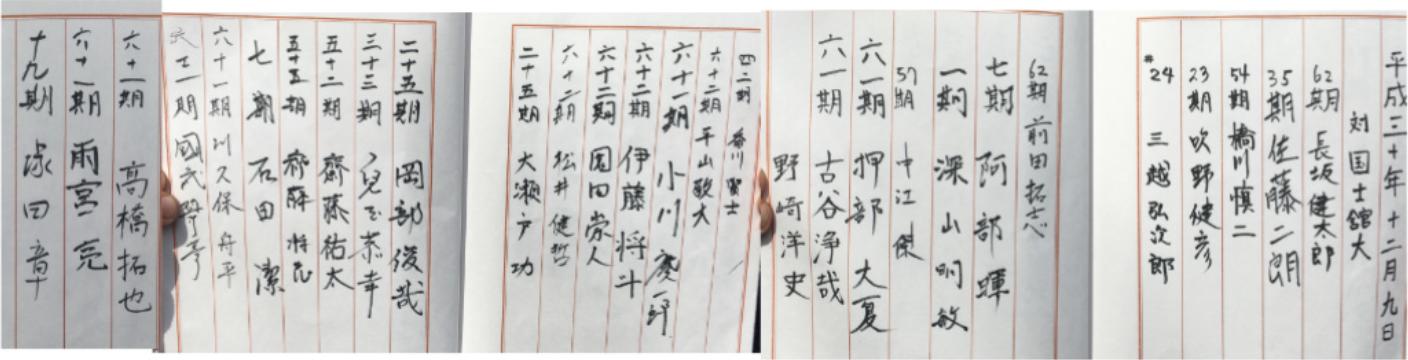 平成三十年十二月九日
対 国士舘大
62期 長坂健太郎
35期 佐藤二朗
54期 橋川慎二
23期 吹野健彦
#24 三越弘次郎
62期 前田拓志
七期 阿部暉
一期 深山明敏
57期 中江傑
六一期 押部大夏
六一期 古谷浄哉
野崎洋史
四二期 香川賢士
六十二期 平山敬大
六十一期 小川慶一郎
六十二期 伊藤将斗
六十三期 園田崇人
六十二期 松井健哲
二十五期 大瀬戸功
二十五期 岡部俊哉
三十三期 兒玉恭幸
五十二期 齋藤祐太
五十五期 齋藤
七期 石田潔
六十一期 川久保舟平
六十一期 國武
六十一期 高橋拓也
六十一期 雨宮亮
十九期 塚田章